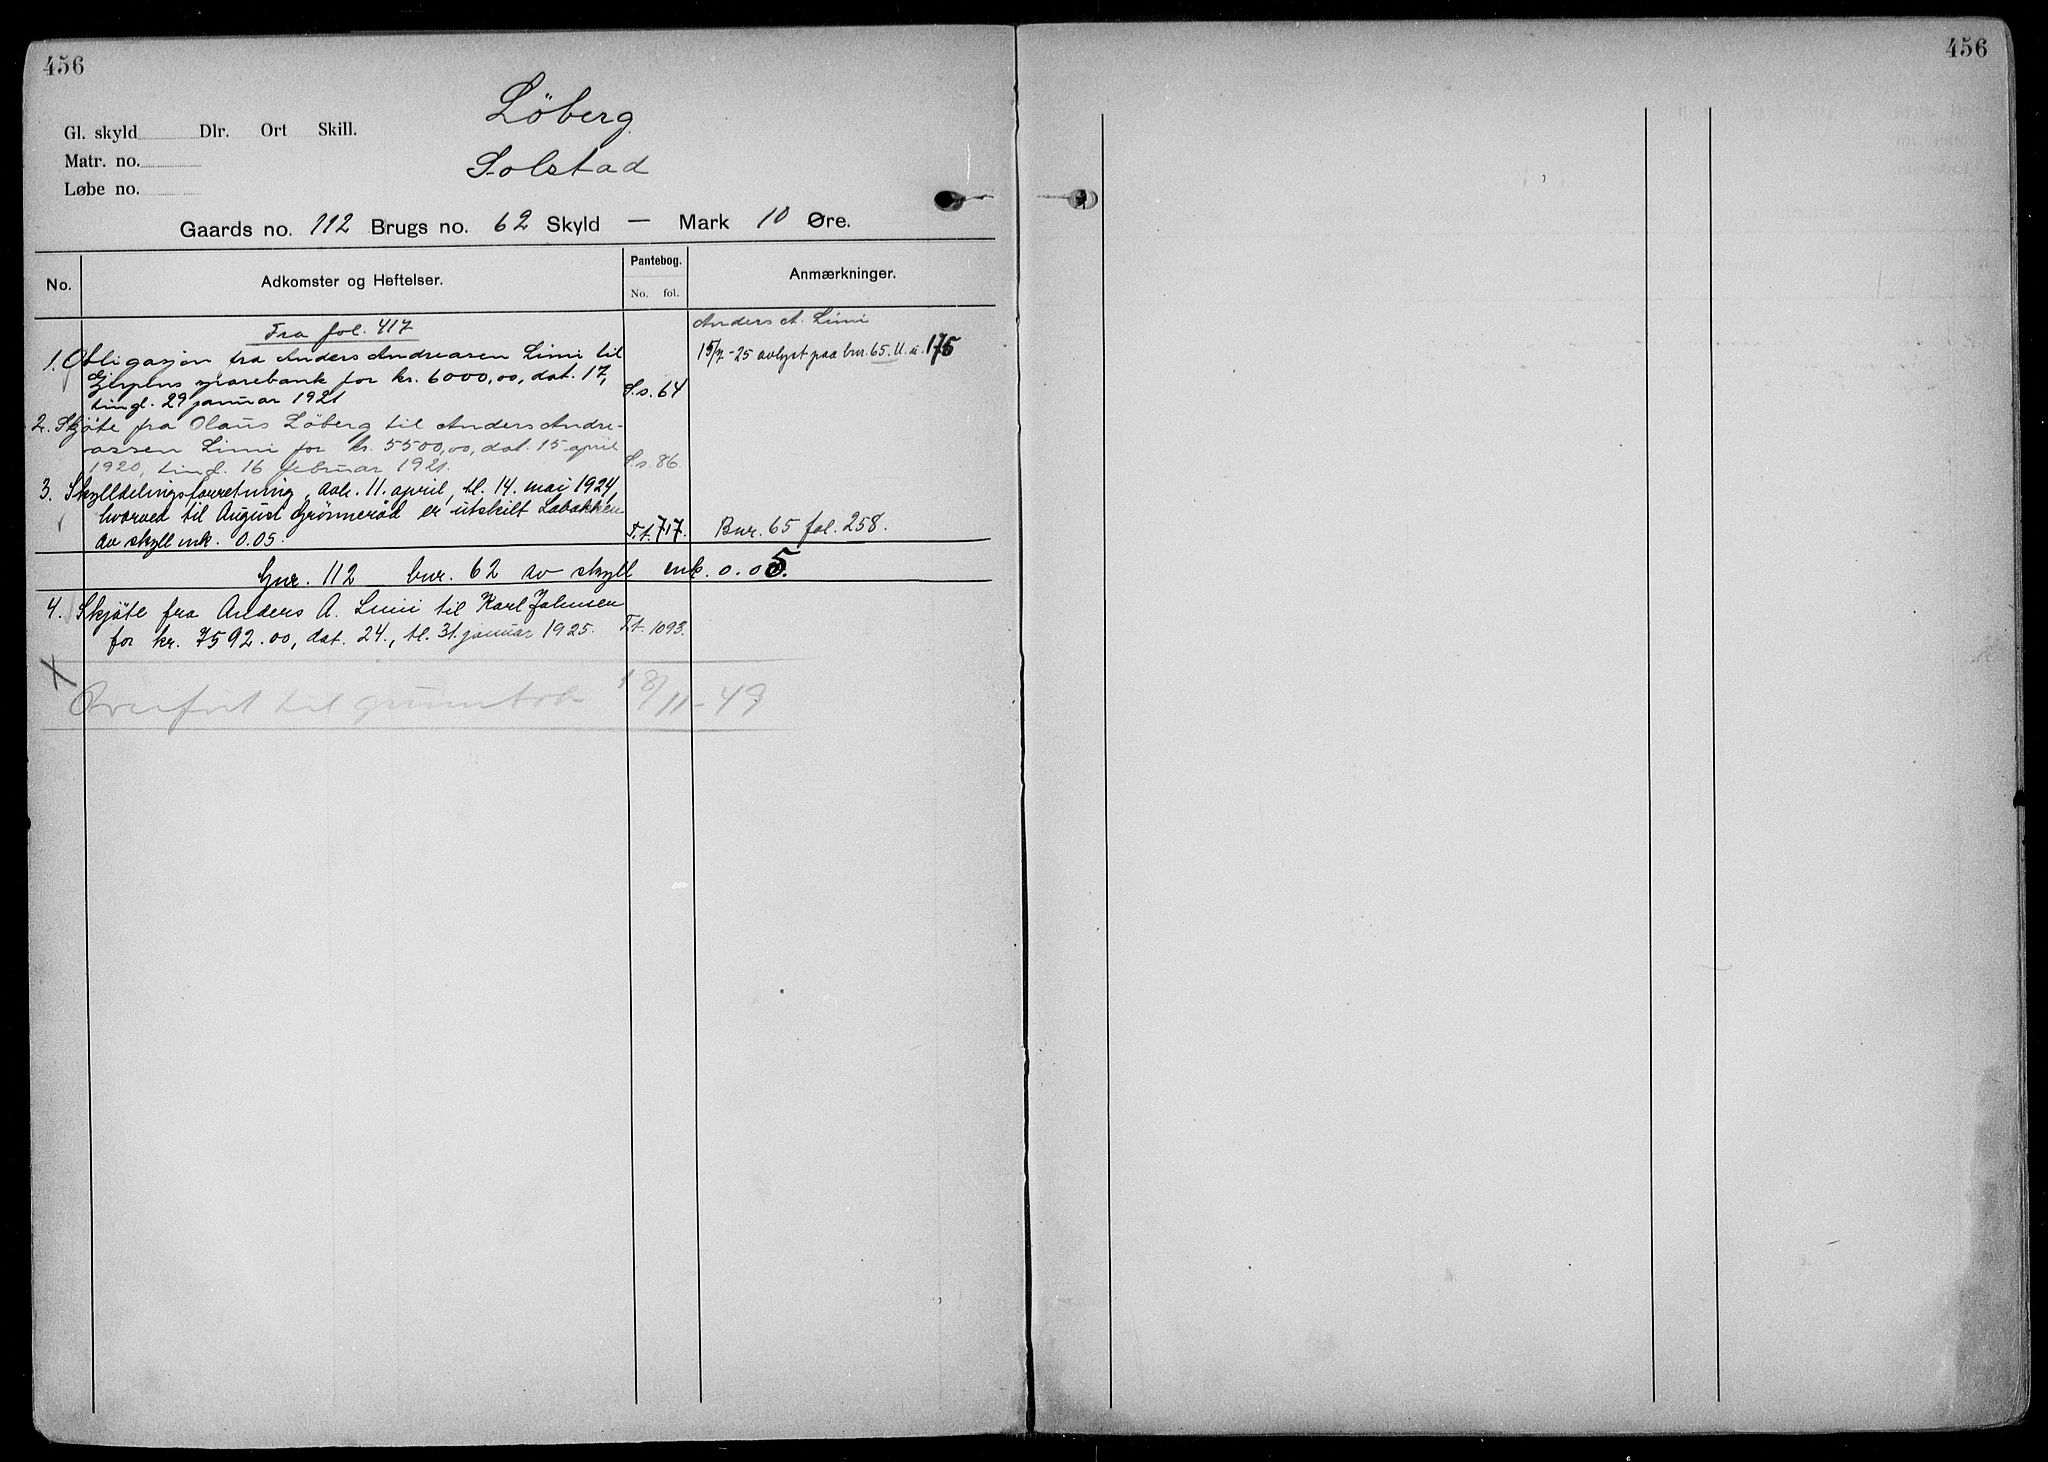 456
456
Løberg
Gl. skyld Dlr. Ort Skill.
Solstad
Matr. no.
Løbe no.
Gaards no. 112 Brugs no. 62 Skyld — Mark 10 Øre.
No. Adkomster og Heftelser. Pantebog. No. fol. Anmærkninger.
Fra fol. 417 Anders A. Limi
1. Obligasjon fra Anders Andreasen Limi til 15/7-25 avlyst paa bnr. 65. U.u. 175
Gjerpens sparebank for kr. 6000,00, dat. 17,
tingl. 29 januar 1921 S.s. 64
2. Skjøte fra Olaus Løberg til Anders Andre-
assen Limi for kr. 5500,00, dat. 15 april
1920, tingl. 16 februar 1921. S.s. 86
3. Skylldelingsforretning, avh. 11. april, tl. 14. mai 1924,
hvorved til August Grönneröd er utskilt Labakken
av skyll mk. 0.05. T.t. 717. Bnr. 65 fol. 258.
Gnr. 112 bnr. 62 av skyll mk. 0.05.
4. Skjöte fra Anders A. Limi til Karl Johnsen
for kr. 7592.00, dat. 24., tl. 31. januar 1925. T.t. 1093.
X
Overført til grunnbok 18/11-49